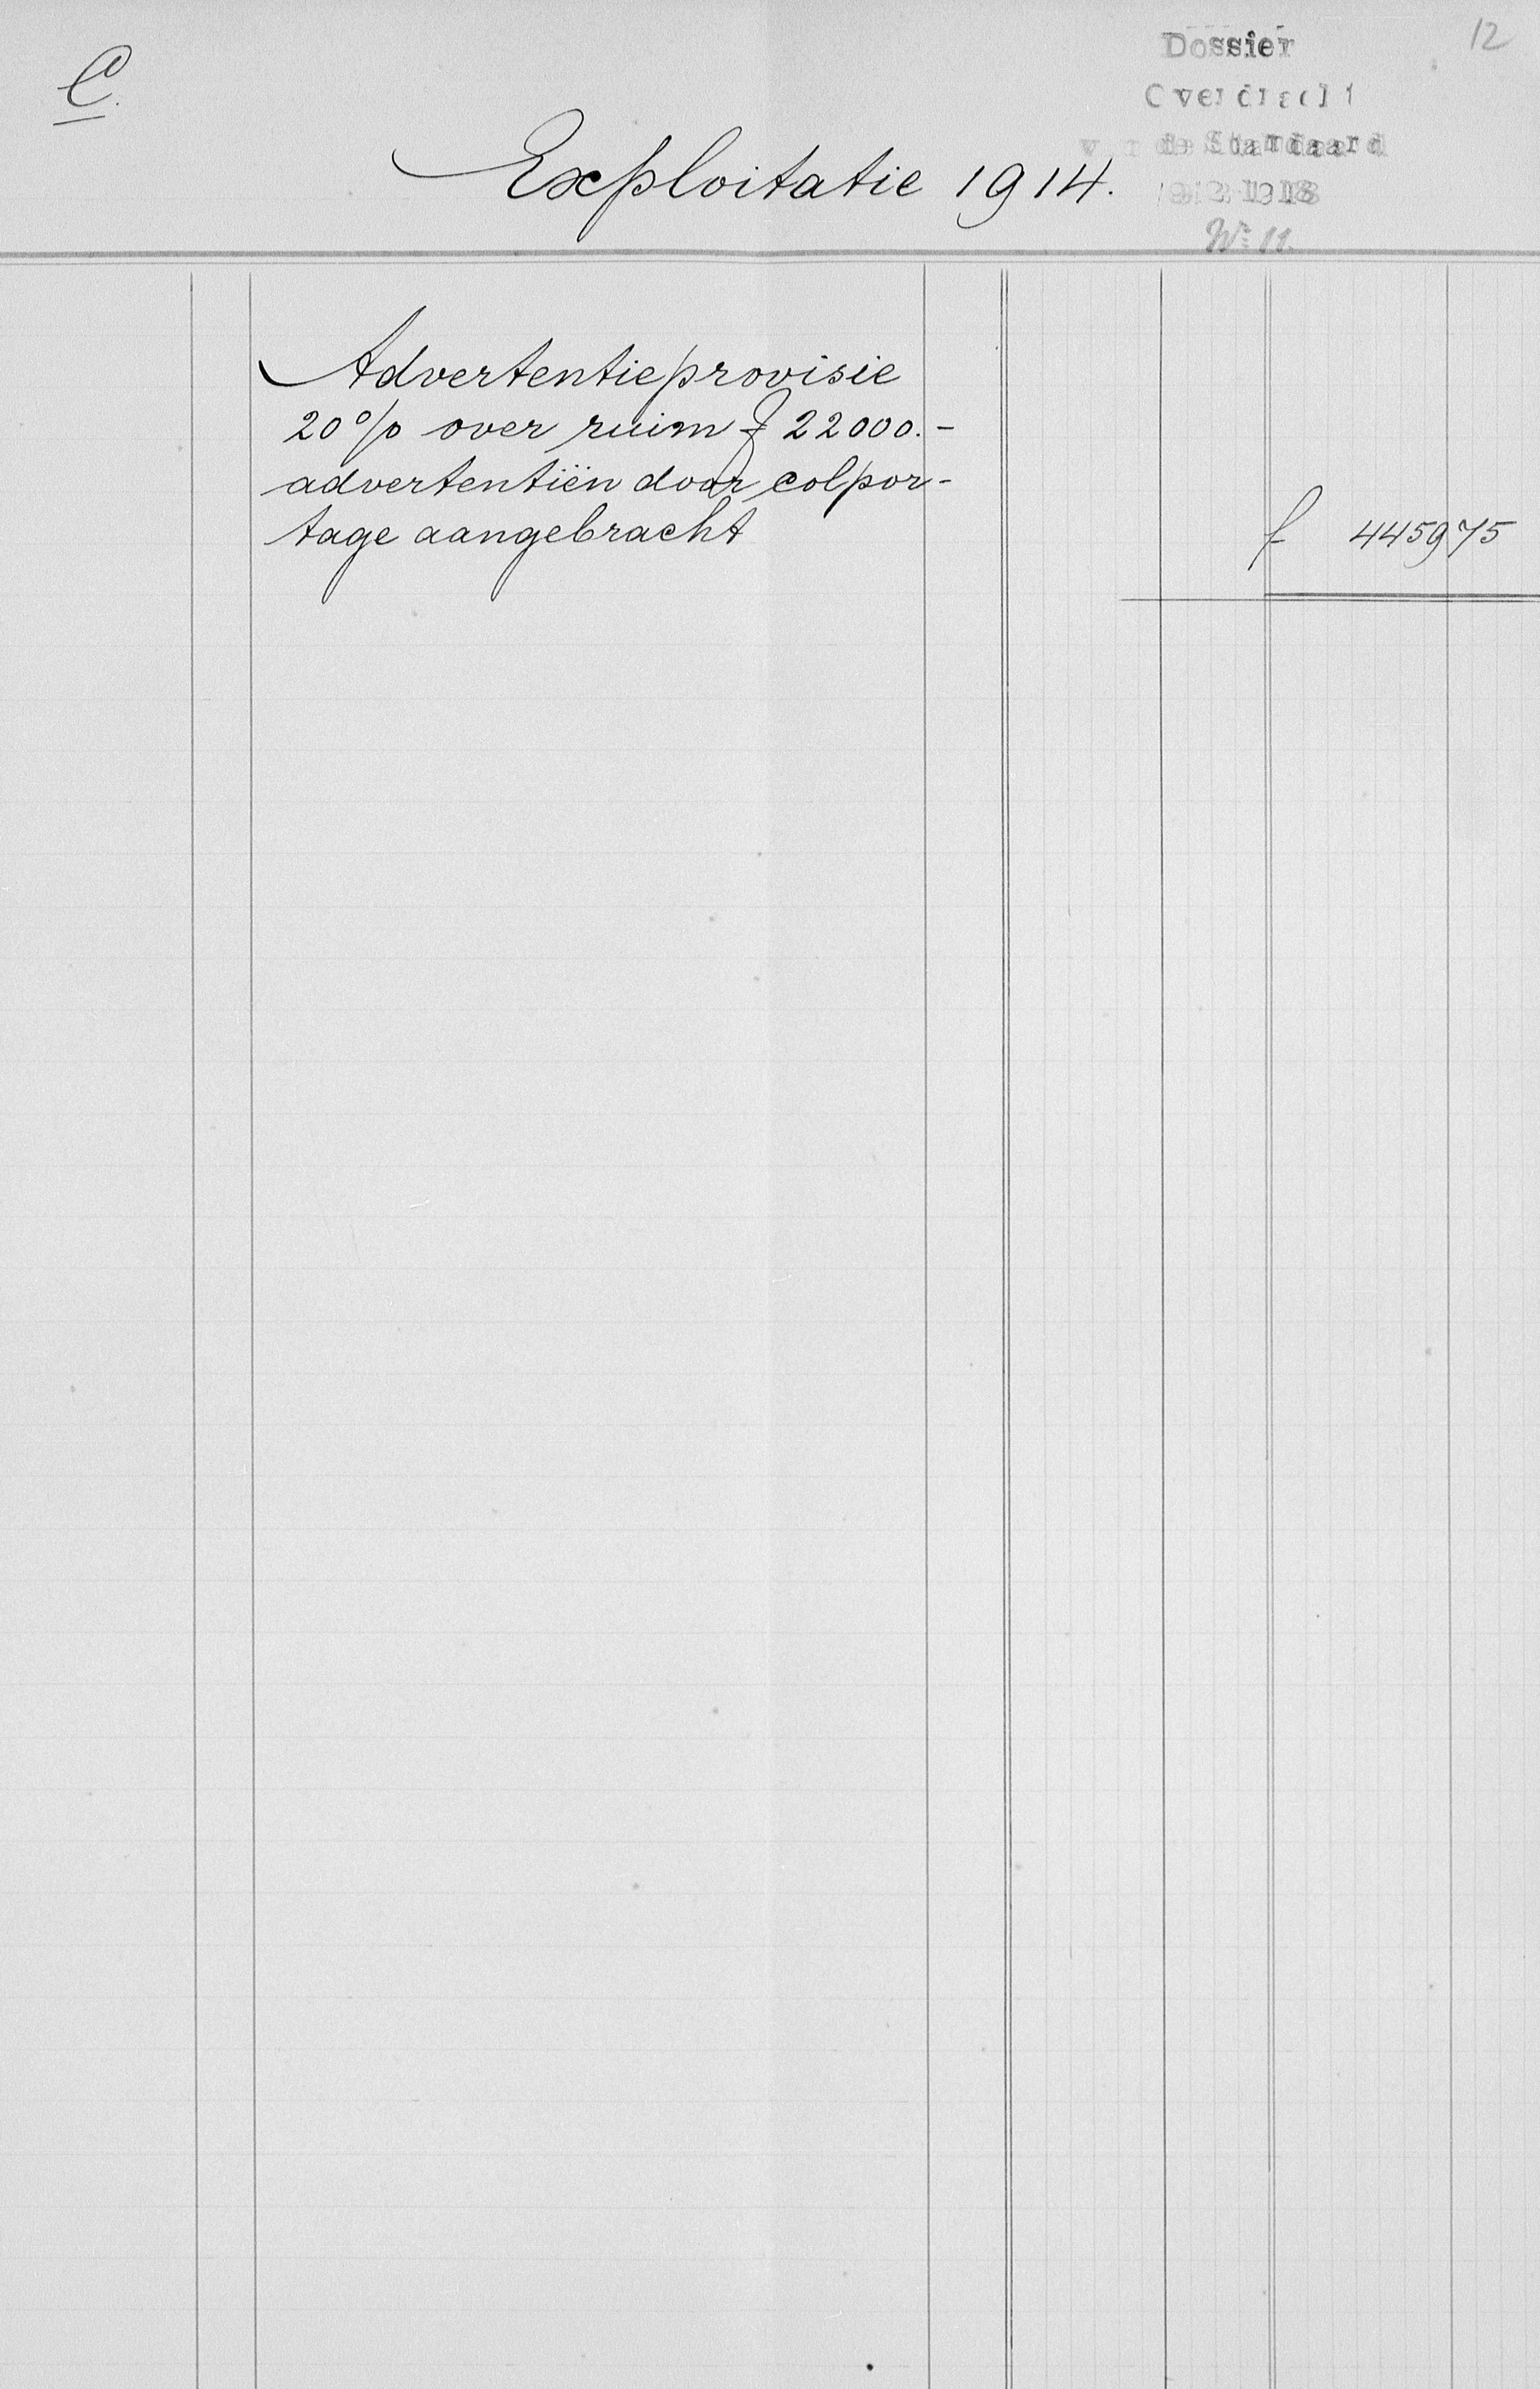 12
C.
Dossier
Overdracht
v. de Standaard
1912-1918
No 11.
Exploitatie 1914.
Advertentieprovisie
20% over ruim f 22000.-
advertentiën door colpor-
tage aangebracht f 4459 75